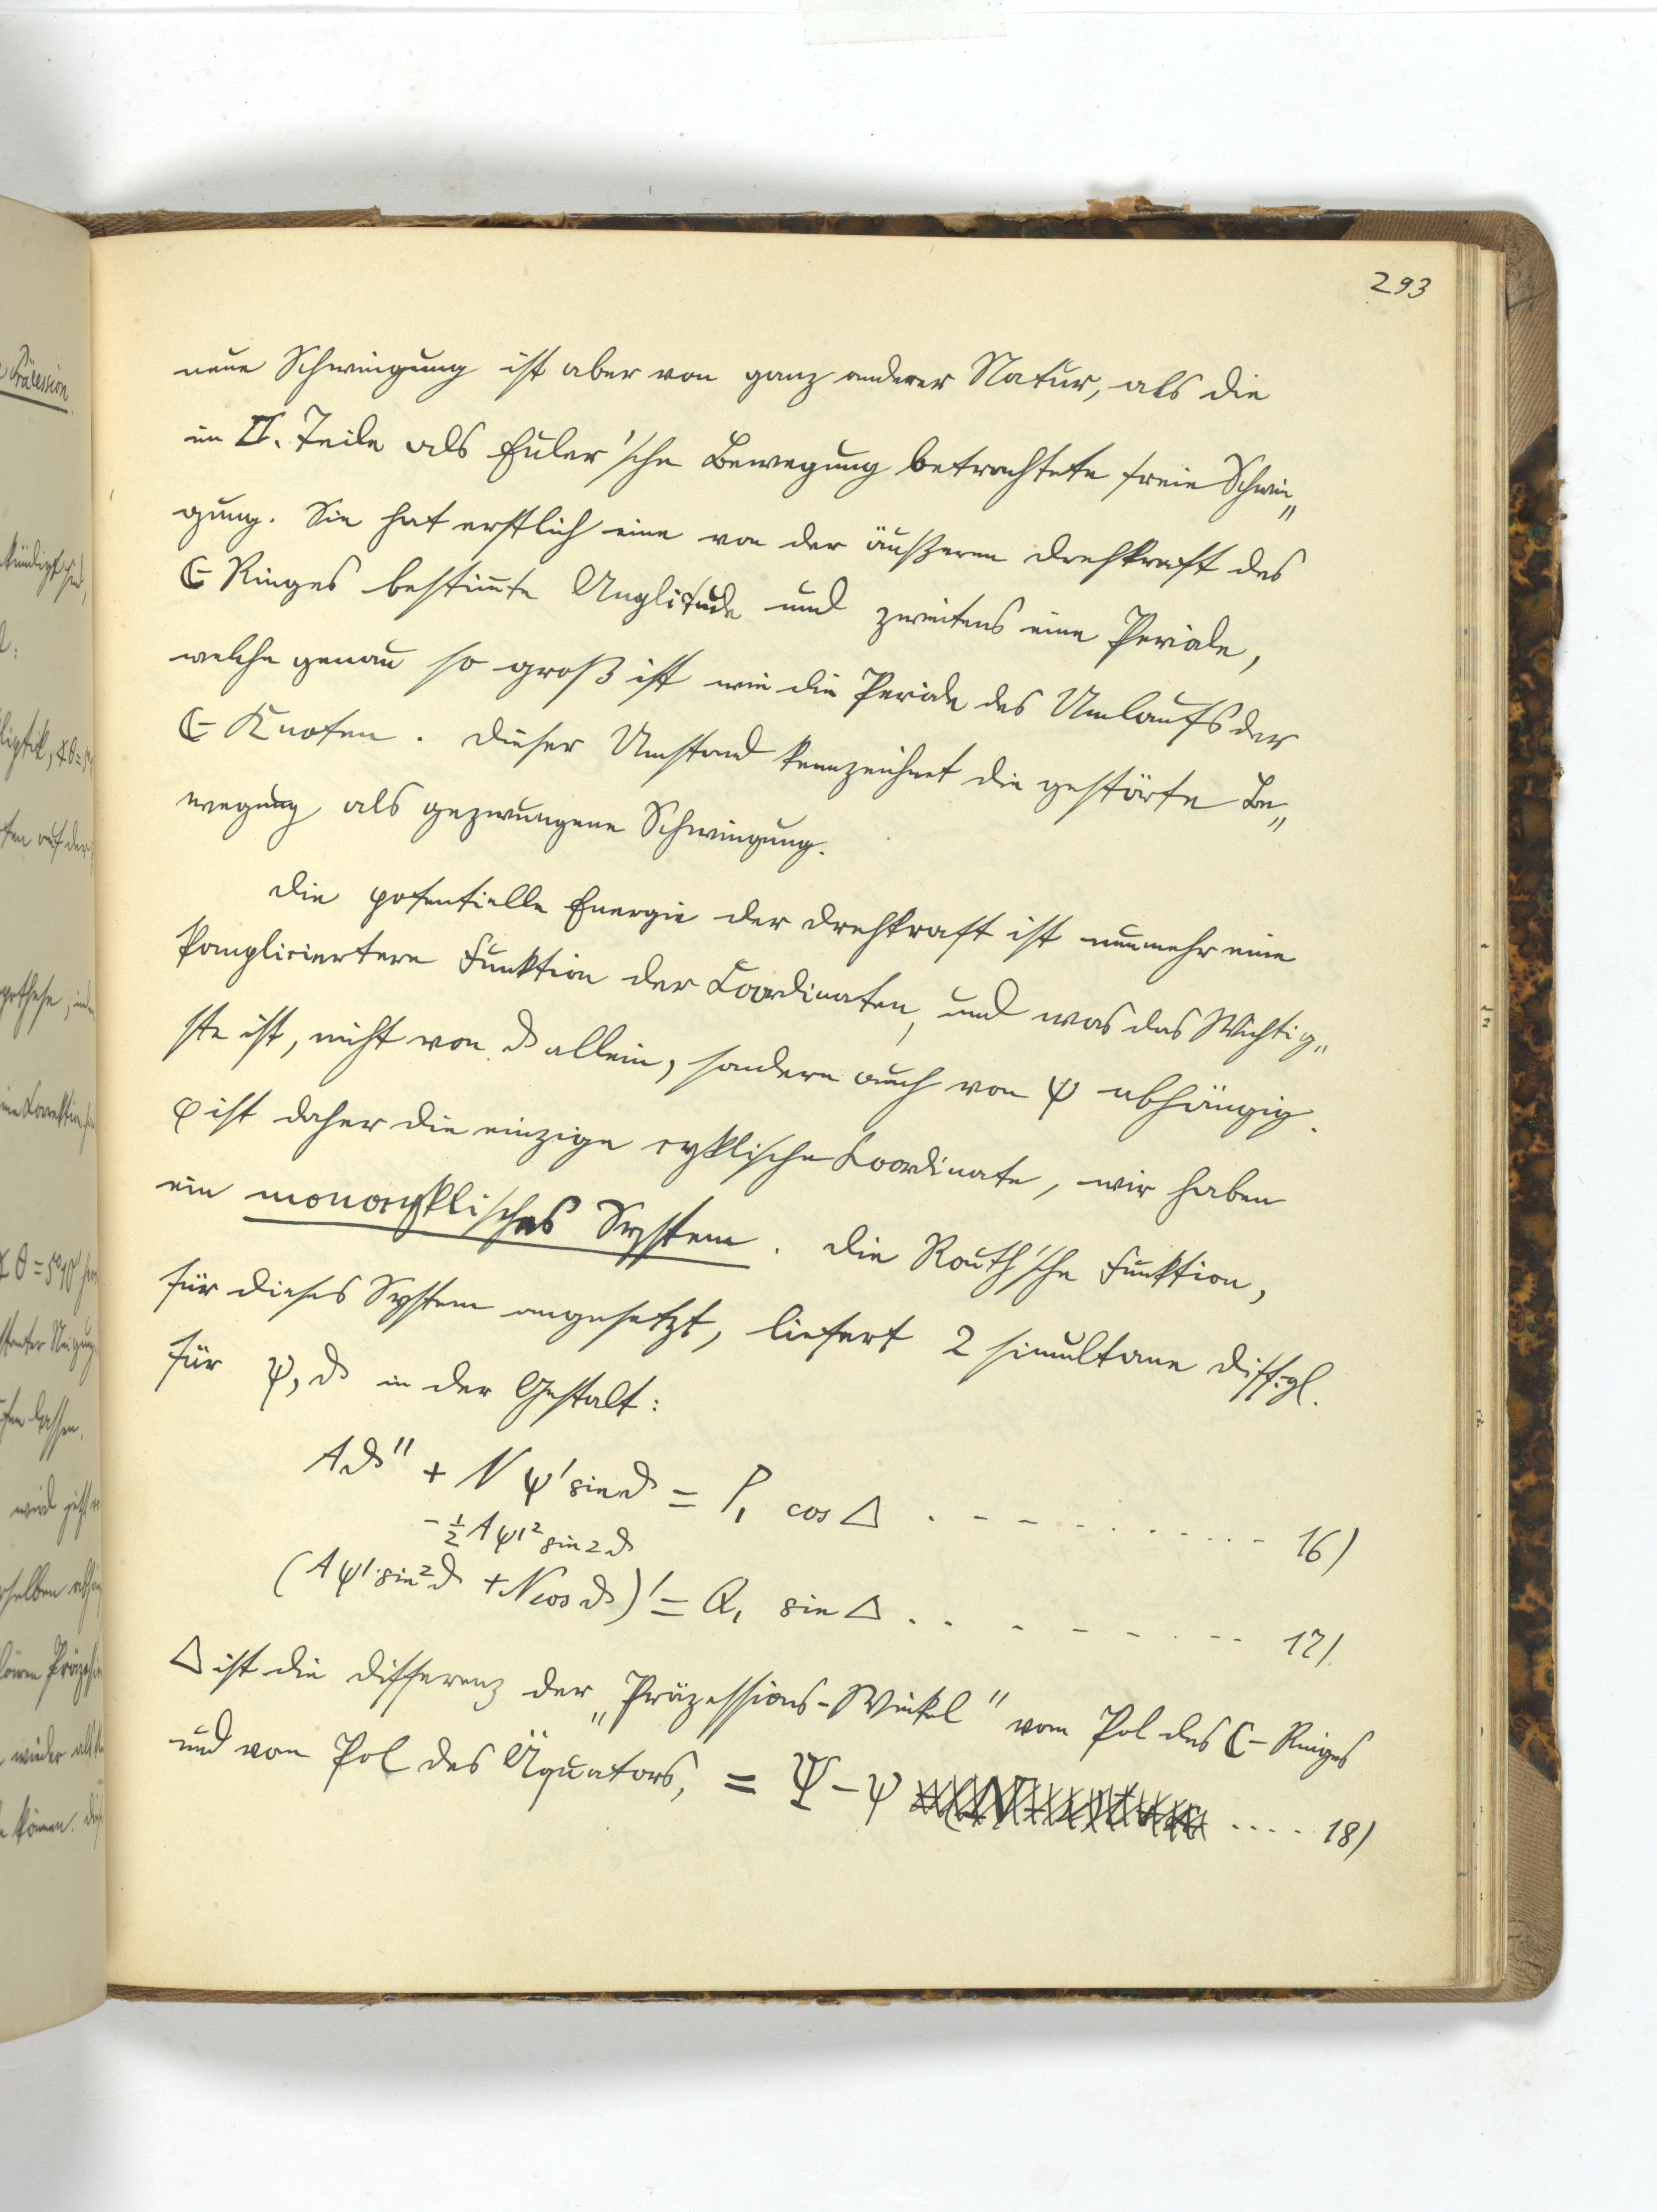 293
neue Schwingung ist aber von ganz anderer Natur, als die
im II. Teile als Euler'sche Bewegung betrachtete freie Schwin„
gung. Sie hat erstlich eine von der äußeren Drehkraft des
☾ Ringes bestim̅te Amplitude und zweitens eine Periode,
welche genau so groß ist wie die Periode des Umlaufs der
☾ Knoten. Dieser Umstand kennzeichnet die gestörte Be„
wegung als gezwungene Schwingung.
Die potentielle Energie der Drehkraft ist nunmehr eine
kompliciertere Funktion der Coordinaten, und was das Wichtig„
ste ist, nicht von ϑ allein, sondern auch von ψ abhängig.
φ ist daher die einzige cyklische Coordinate, wir haben
ein monocyklisches System. Die Routh'sche Funktion,
für dieses System angesetzt, liefert 2 simultane Diff.gl.
für ψ, ϑ in der Gestalt:
Aϑ'' + N ψ' sin ϑ = P₁ cos Δ . - - - . . . . - - - 16)
- ½ A ψ'² sin 2ϑ
(A ψ' sin² ϑ + N cos ϑ)' = Q₁ sin Δ . . - - - - . - - 17)
Δ ist die Differenz der „Präzessions-Winkel" vom Pol des ☾-Ringes
und vom Pol des Äquators, = Ψ - ψ .... 18)
Präcession